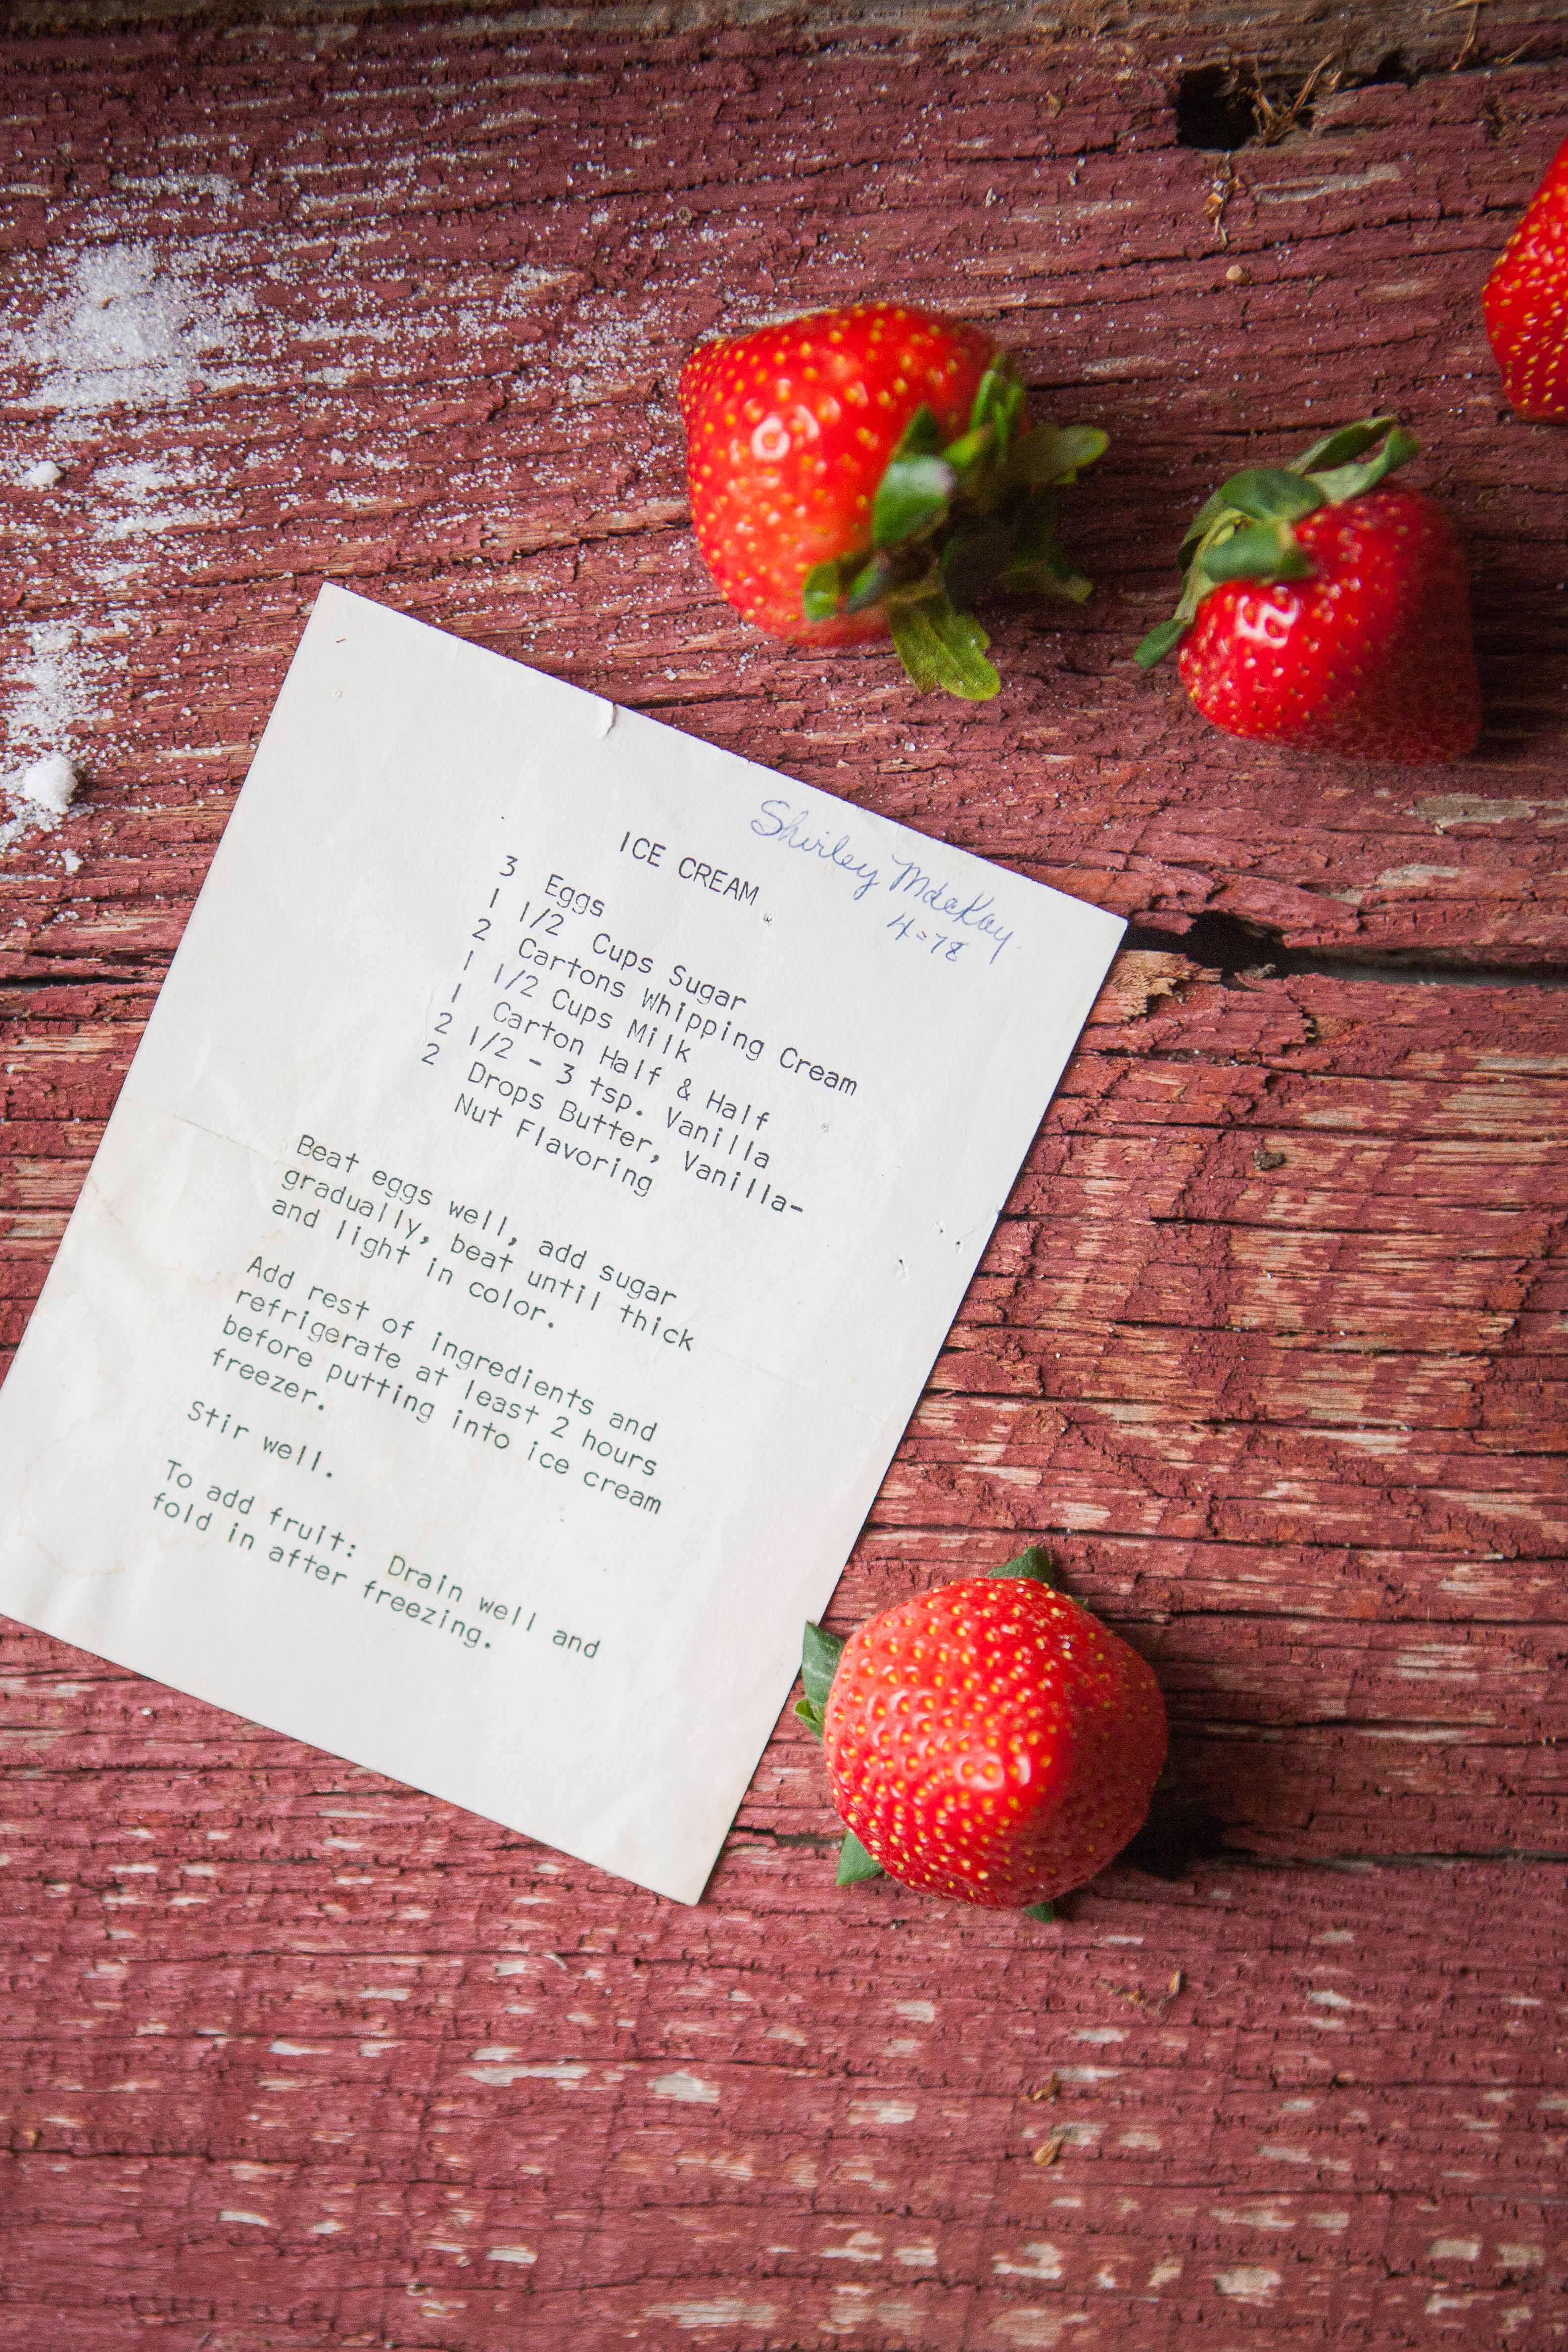 Shirley MacKay
4-78
ICE CREAM
3 Eggs
1 1/2 Cups Sugar
2 Cartons Whipping Cream
1 1/2 Cups Milk
1 Carton Half & Half
2 1/2 - 3 tsp. Vanilla
2 Drops Butter, Vanilla-
Nut Flavoring
Beat eggs well, add sugar
gradually, beat until thick
and light in color.
Add rest of ingredients and
refrigerate at least 2 hours
before putting into ice cream
freezer.
Stir well.
To add fruit: Drain well and
fold in after freezing.